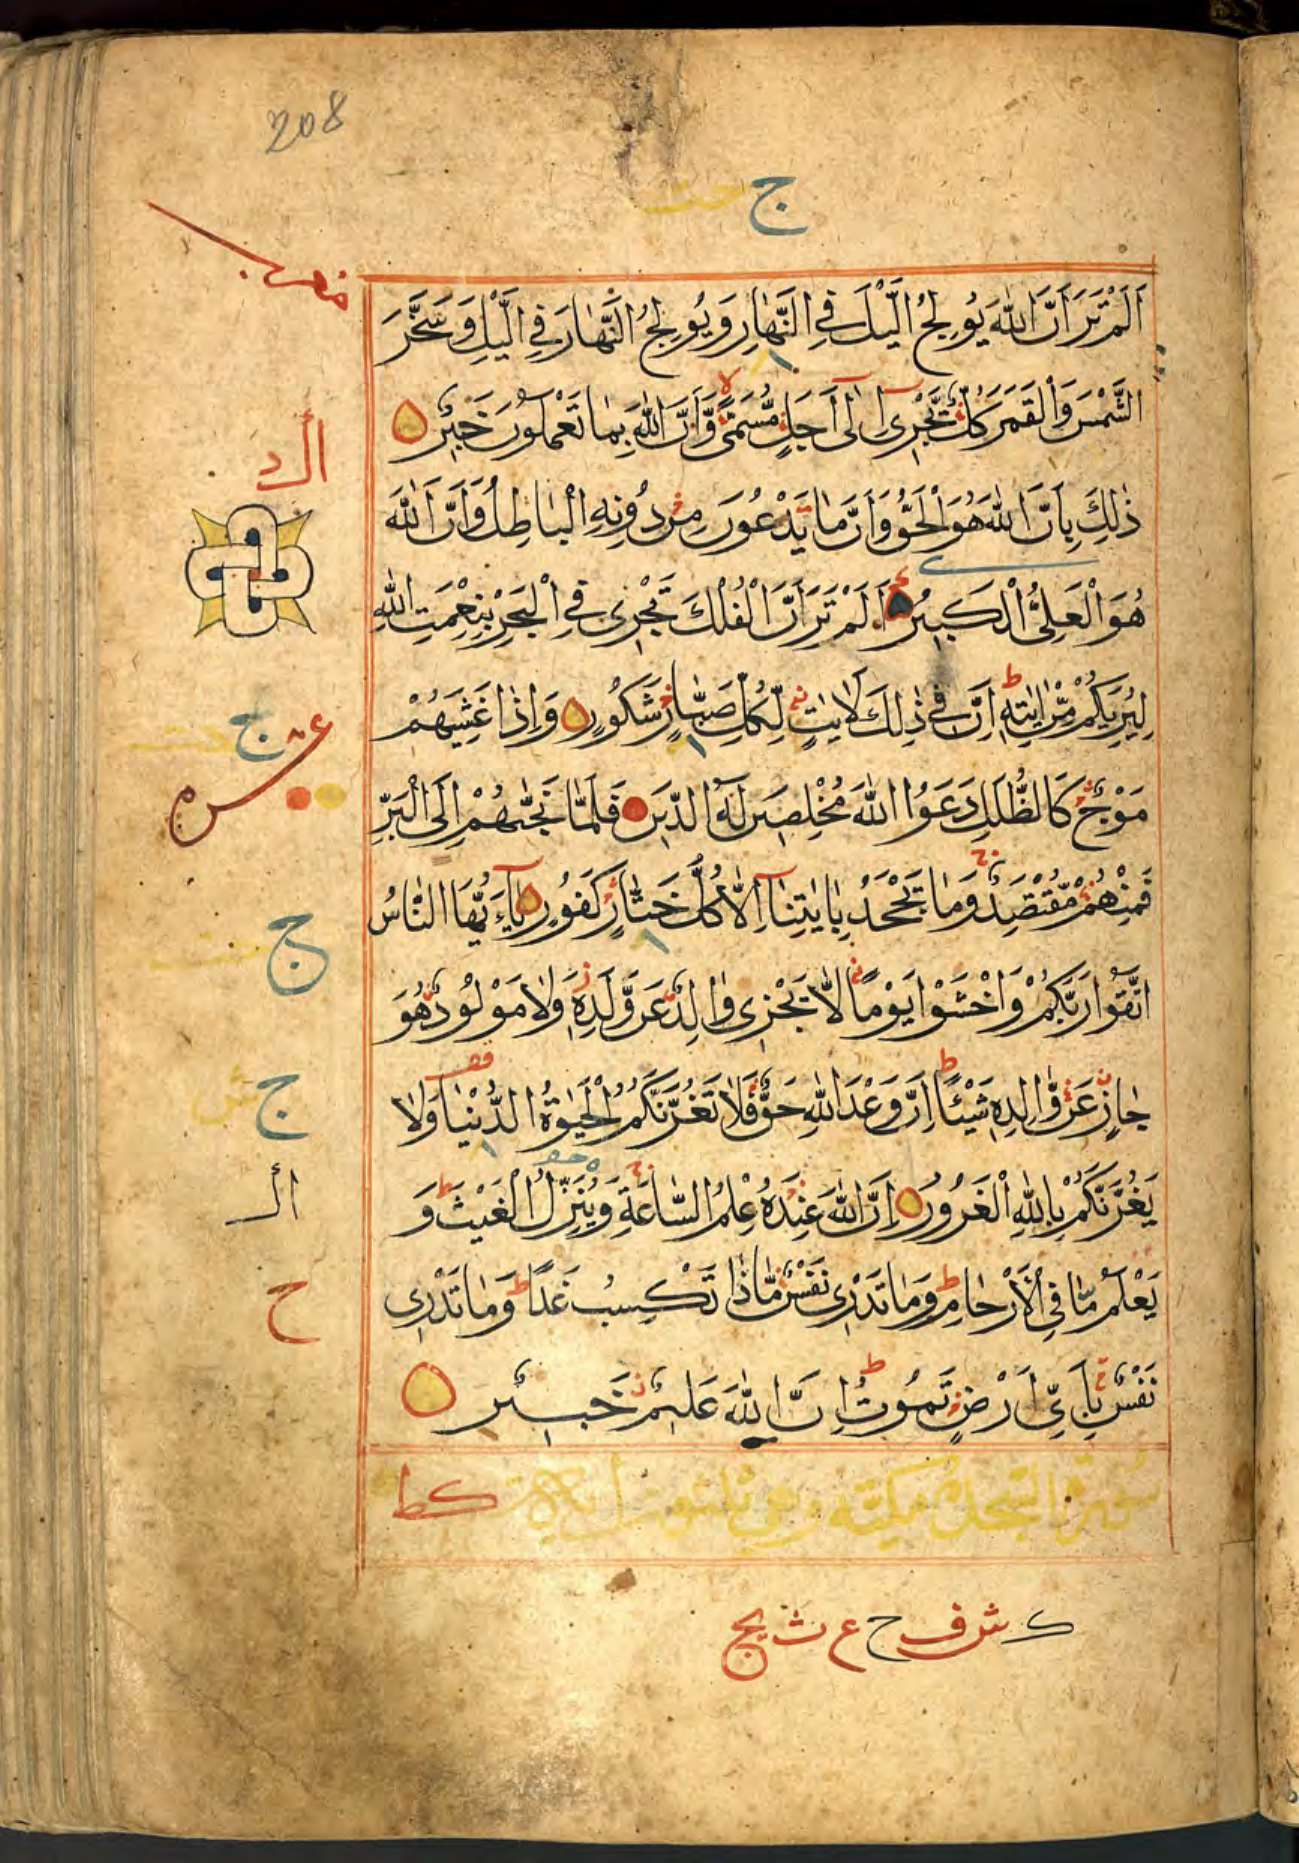 208
ج
اَلَمْ تَرَ اَنَّ اللّٰهَ يُوْلِجُ الَّيْلَ فِي النَّهَارِ وَيُوْلِجُ النَّهَارَ فِي الَّيْلِ وَسَخَّرَ
الشَّمْسَ وَالْقَمَرَ كُلٌّ يَّجْرِيْ اِلٰى اَجَلٍ مُّسَمًّى وَّاَنَّ اللّٰهَ بِمَا تَعْمَلُوْنَ خَبِيْرٌ
ذٰلِكَ بِاَنَّ اللّٰهَ هُوَ الْحَقُّ وَاَنَّ مَا يَدْعُوْنَ مِنْ دُوْنِهِ الْبَاطِلُ وَاَنَّ اللّٰهَ
هُوَ الْعَلِيُّ الْكَبِيْرُ اَلَمْ تَرَ اَنَّ الْفُلْكَ تَجْرِيْ فِي الْبَحْرِ بِنِعْمَتِ اللّٰهِ
لِيُرِيَكُمْ مِّنْ اٰيٰتِهٖ اِنَّ فِيْ ذٰلِكَ لَاٰيٰتٍ لِّكُلِّ صَبَّارٍ شَكُوْرٍ وَاِذَا غَشِيَهُمْ
مَوْجٌ كَالظُّلَلِ دَعَوُا اللّٰهَ مُخْلِصِيْنَ لَهُ الدِّيْنَ فَلَمَّا نَجّٰىهُمْ اِلَى الْبَرِّ
فَمِنْهُمْ مُّقْتَصِدٌ وَمَا يَجْحَدُ بِاٰيٰتِنَا اِلَّا كُلُّ خَتَّارٍ كَفُوْرٍ يٰٓاَيُّهَا النَّاسُ
اتَّقُوْا رَبَّكُمْ وَاخْشَوْا يَوْمًا لَّا يَجْزِيْ وَالِدٌ عَنْ وَّلَدِهٖ وَلَا مَوْلُوْدٌ هُوَ
جَازٍ عَنْ وَّالِدِهٖ شَيْئًا اِنَّ وَعْدَ اللّٰهِ حَقٌّ فَلَا تَغُرَّنَّكُمُ الْحَيٰوةُ الدُّنْيَا وَلَا
يَغُرَّنَّكُمْ بِاللّٰهِ الْغَرُوْرُ اِنَّ اللّٰهَ عِنْدَهٗ عِلْمُ السَّاعَةِ وَيُنَزِّلُ الْغَيْثَ وَ
يَعْلَمُ مَا فِي الْاَرْحَامِ وَمَا تَدْرِيْ نَفْسٌ مَّاذَا تَكْسِبُ غَدًا وَمَا تَدْرِيْ
نَفْسٌ بِاَيِّ اَرْضٍ تَمُوْتُ اِنَّ اللّٰهَ عَلِيْمٌ خَبِيْرٌ
سورة السجدة مكية وهي ثلثون
كط
ك ش ف ح ع ث يج
ج
ج
ج
ح